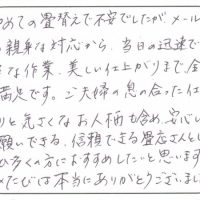 めての畳替えで不安でしたが、メール
親身な対応から、当日の迅速で
な作業、美しい仕上がりまで全
満足です。ご夫婦の息の合った仕
りと気さくなお人柄も含め、安心し
願いできる、信頼できる畳店さんとし
ひ多くの方におすすめしたいと思います
たびは本当にありがとうございまし